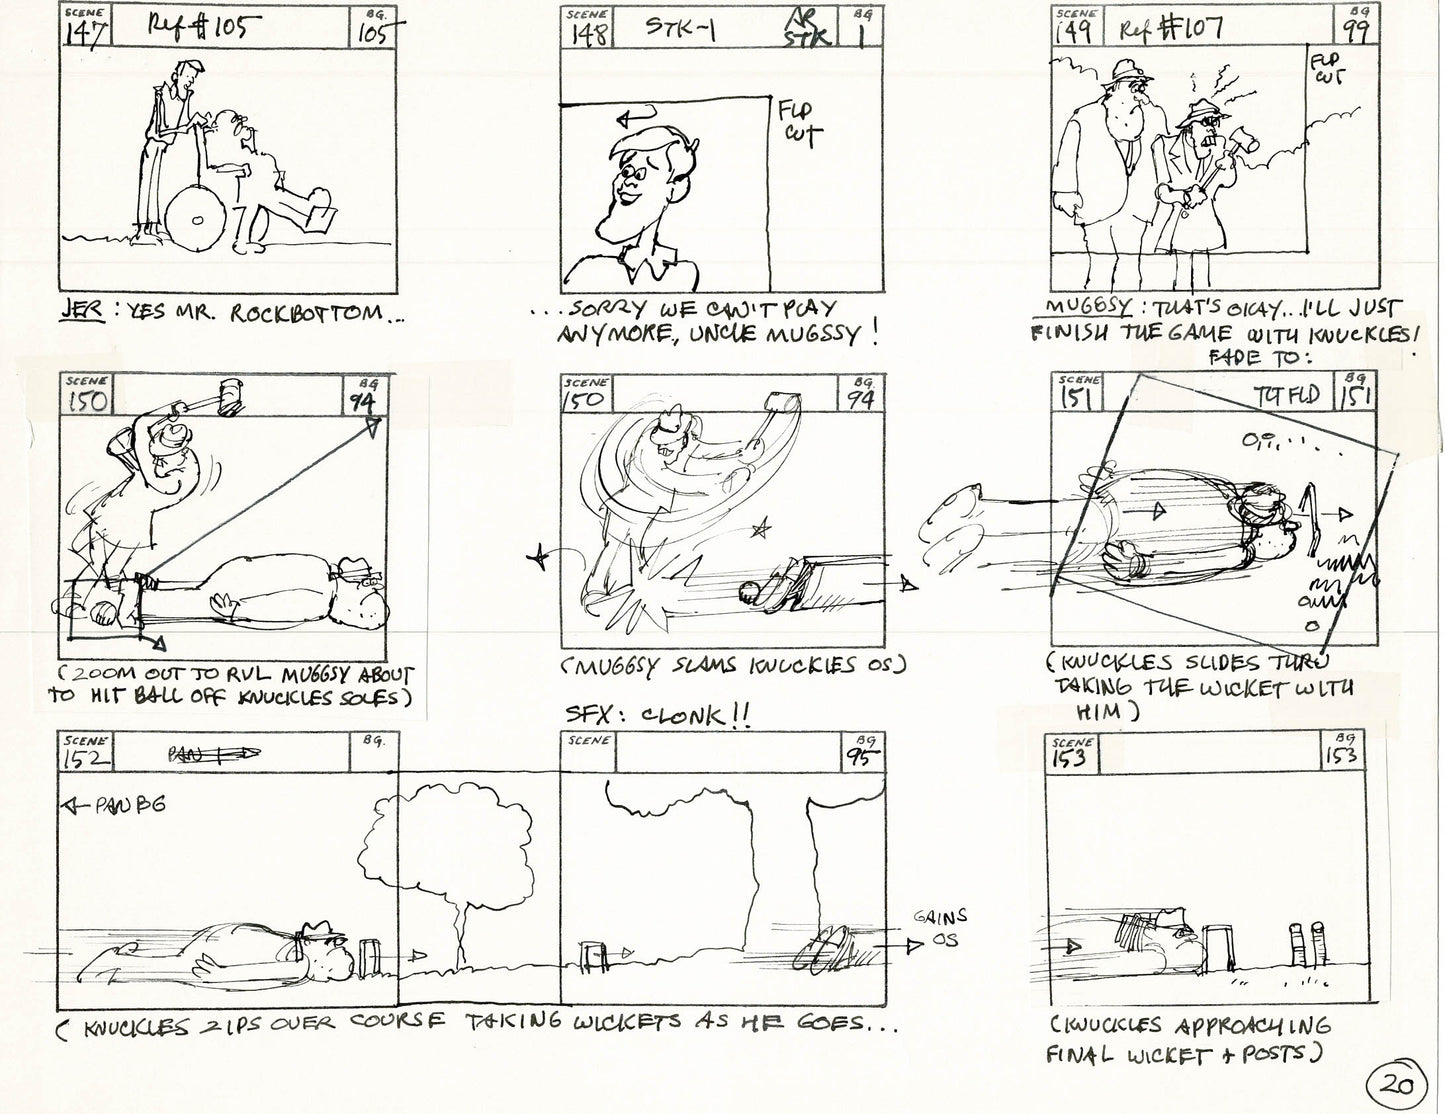 SCENE 147 Ref #105 BG. 105
SCENE 148 STK-1 AR STK BG 1
SCENE 149 Ref #107 BG 99
FLD CUT
FLD CUT
JER : YES MR. ROCKBOTTOM...
...SORRY WE CAN'T PLAY
ANYMORE, UNCLE MUGSSY !
MUGGSY : THAT'S OKAY...I'LL JUST
FINISH THE GAME WITH KNUCKLES!
FADE TO:
SCENE 150 BG. 94
SCENE 150 BG. 94
SCENE 151 TCT FLD BG 151
(ZOOM OUT TO RVL MUGGSY ABOUT
TO HIT BALL OFF KNUCKLES SOLES)
(MUGGSY SLAMS KNUCKLES OS)
SFX: CLONK!!
(KNUCKLES SLIDES THRU
TAKING THE WICKET WITH
HIM)
SCENE 152 PAN BG.
SCENE BG 95
SCENE 153 BG 153
PAN BG
GAINS
OS
( KNUCKLES ZIPS OVER COURSE TAKING WICKETS AS HE GOES...
(KNUCKLES APPROACHING
FINAL WICKET + POSTS)
20